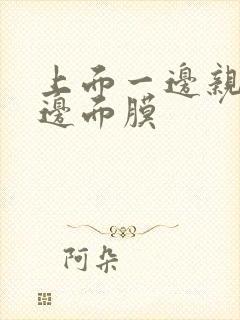 上而一邊親
邊而膜
阿朵